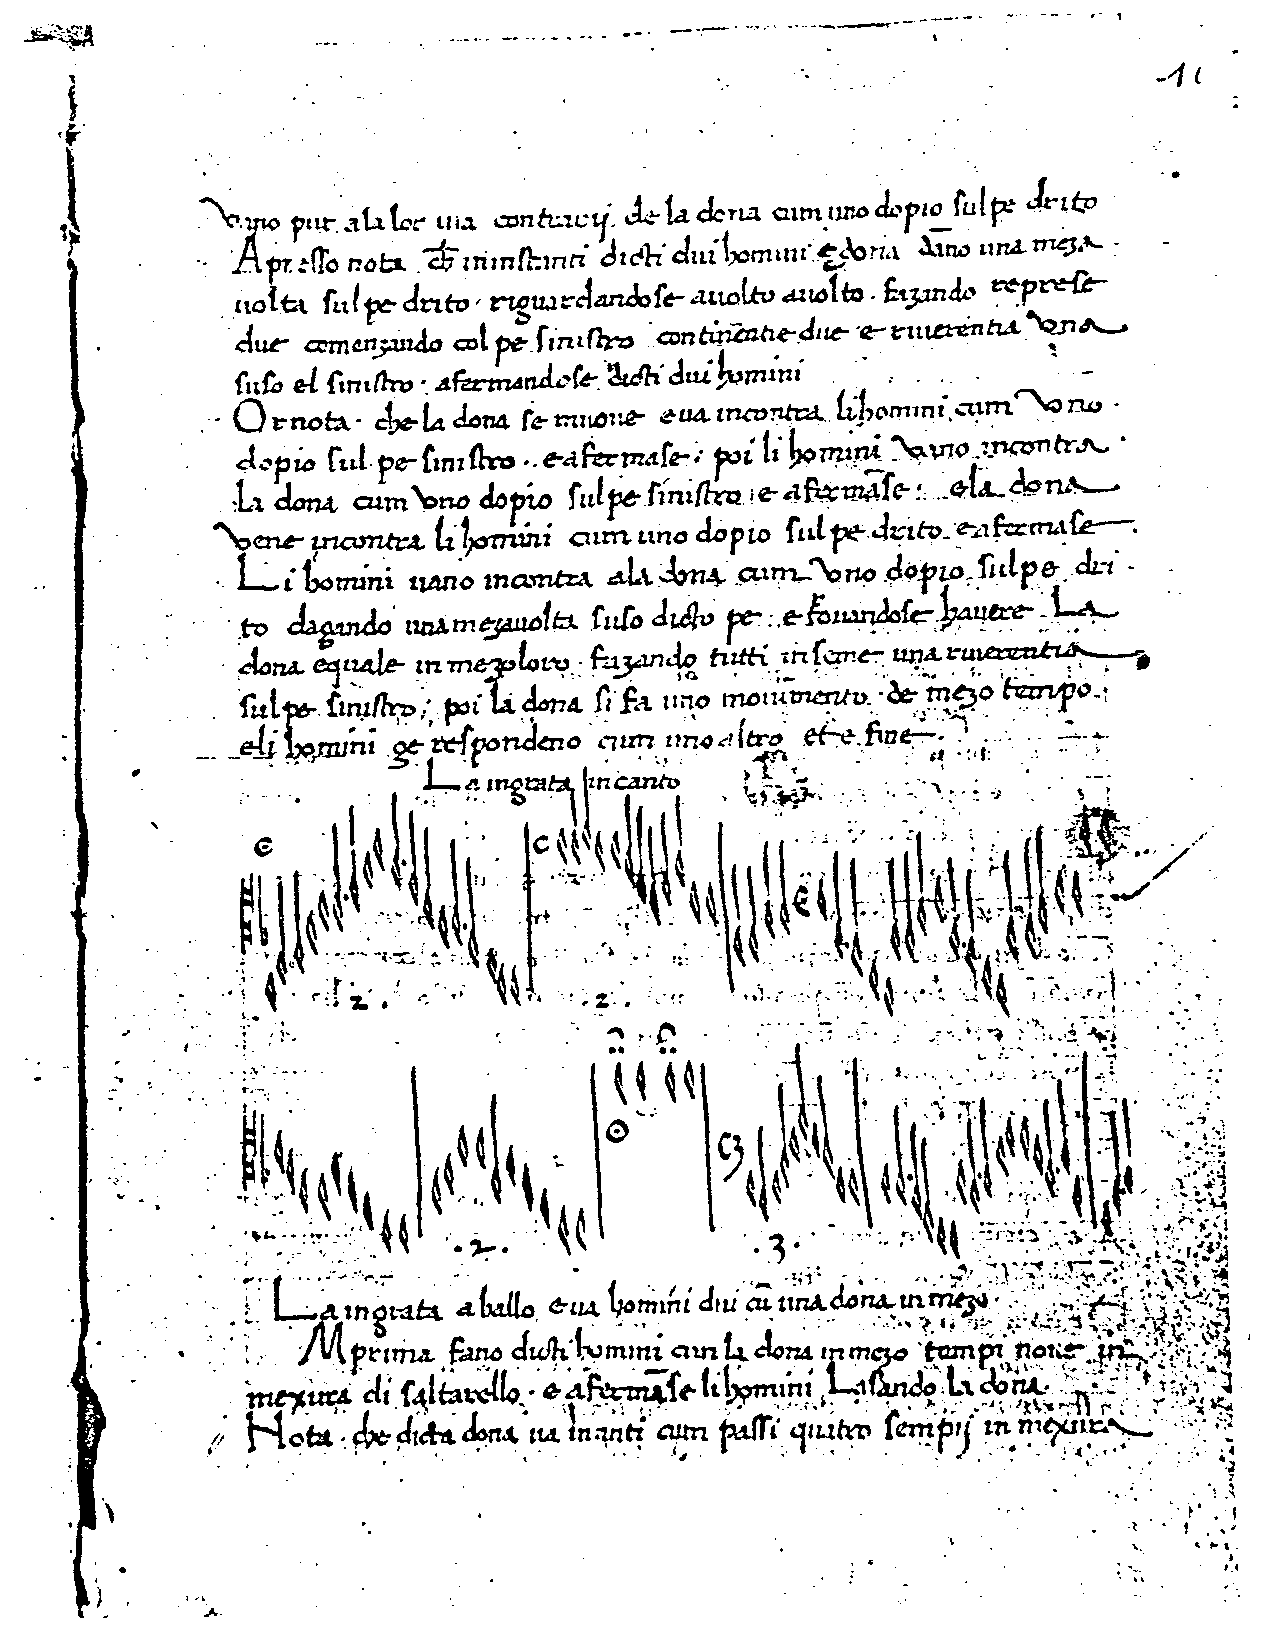 Vano pur a la lor via contrarij de la dona cum uno dopio sul pe drito
Apresso nota che in instanti dicti dui homini e dona dāno una meza
uolta sul pe drito · riguardandose auolto auolto · fazando represe
due comenzando col pe sinistro continētie due e riuerentia Vna
suso el sinistro · afermandose dicti dui homini
Or nota · che la dona se muoue e ua incontra li homini cum Vno
dopio sul pe sinistro · e afermase · poi li homini Vano incontra
la dona cum Vno dopio sul pe sinistro e afermāse : e la dona
Vene incontra li homini cum uno dopio sul pe drito e afermase
Li homini uano incontra a la dona cum Vno dopio sul pe dri
to dagando una meza uolta suso dicto pe · e trouandose hauere La
dona equale in mezo loro · fazando tutti inseme una riuerentia
sul pe sinistro ; poi la dona si fa uno mouimento de mezo tempo
e li homini ge respondeno cum uno altro et e fine
La ingrata in canto
.2. .2.
.2. .3.
La ingrata a ballo e ua homini dui cū una dona in mezo
In prima fano dicti homini cun la dona in mezo tempi noue in
mexura di saltarello · e afermāse li homini Lasando la dona
Nota · che dicta dona ua inanti cum passi quatro sempij in mexura